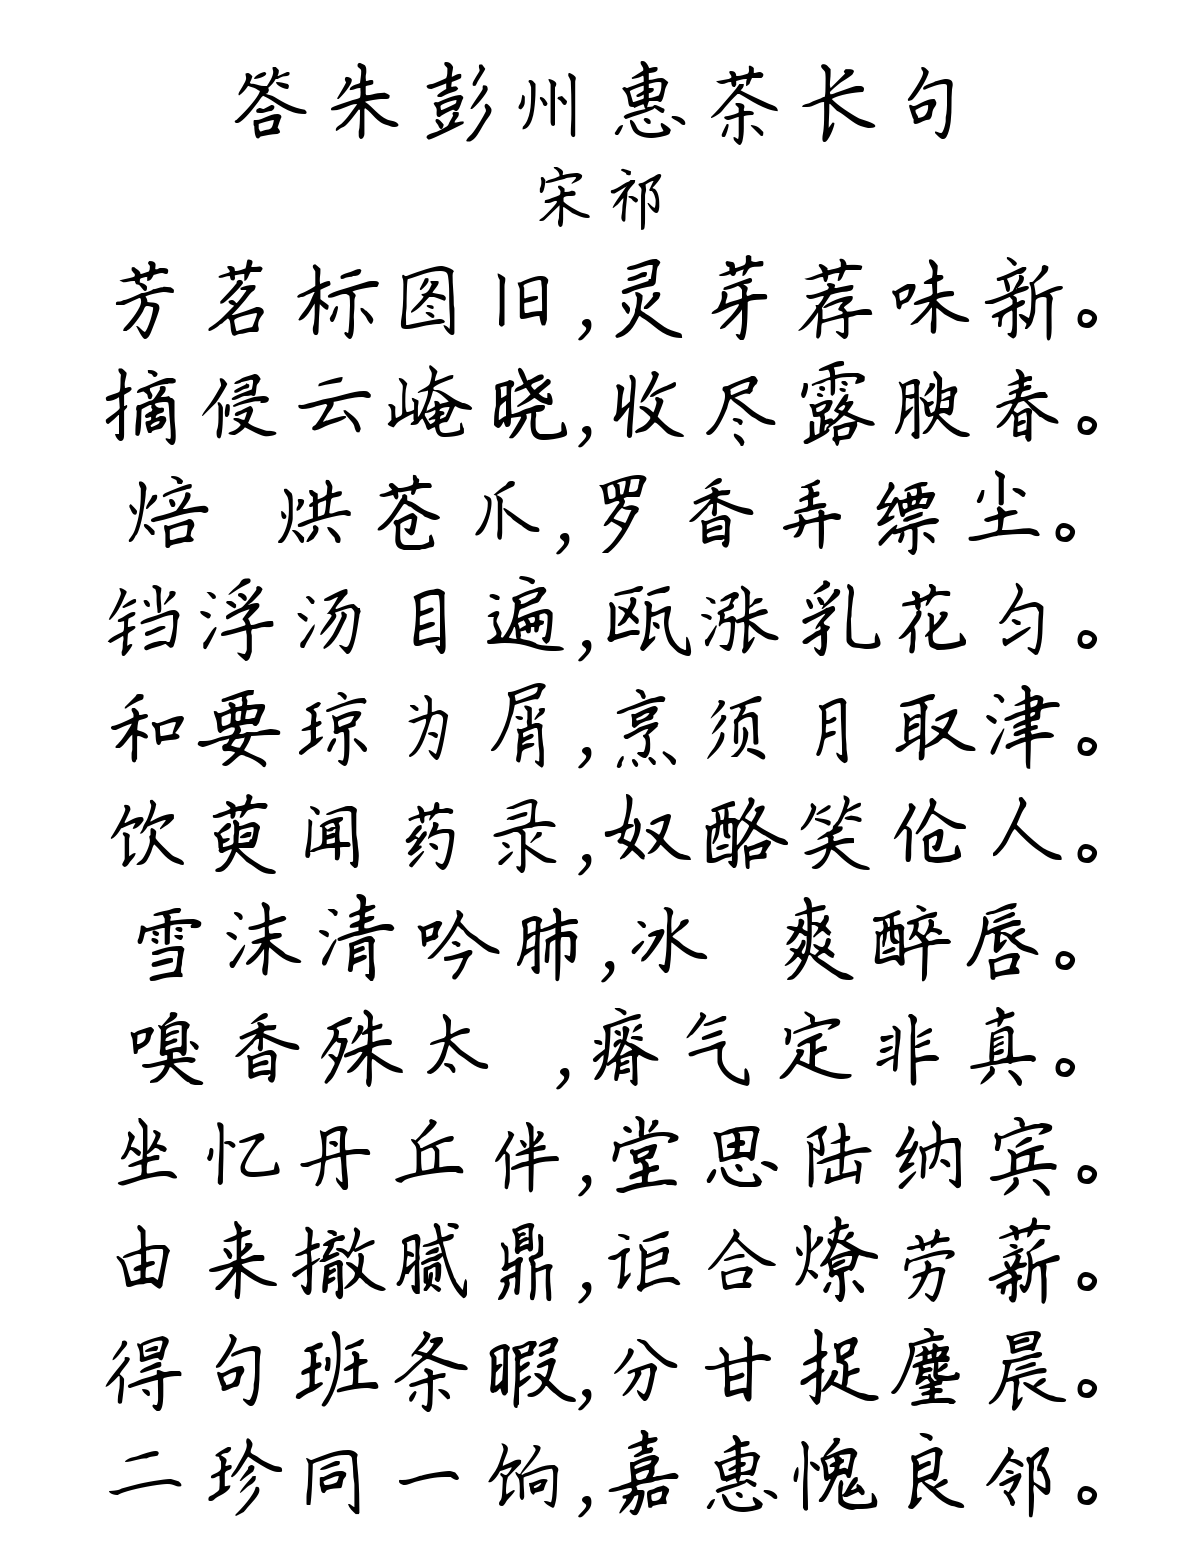 答朱彭州惠茶长句
宋祁
芳茗标图旧,灵芽荐味新。
摘侵云崦晓,收尽露腴春。
焙 烘苍爪,罗香弄缥尘。
铛浮汤目遍,瓯涨乳花匀。
和要琼为屑,烹须月取津。
饮萸闻药录,奴酪笑伧人。
雪沫清吟肺,冰 爽醉唇。
嗅香殊太 ,瘠气定非真。
坐忆丹丘伴,堂思陆纳宾。
由来撤腻鼎,讵合燎劳薪。
得句班条暇,分甘捉麈晨。
二珍同一饷,嘉惠愧良邻。